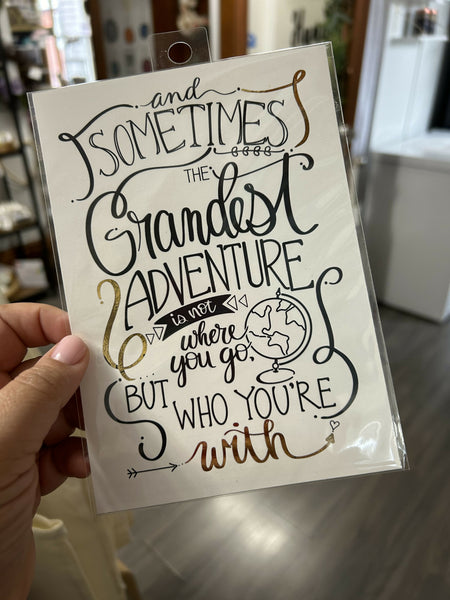 and
SOMETIMES
THE
Grandest
ADVENTURE
is not
where
you go,
BUT WHO YOU'RE
with